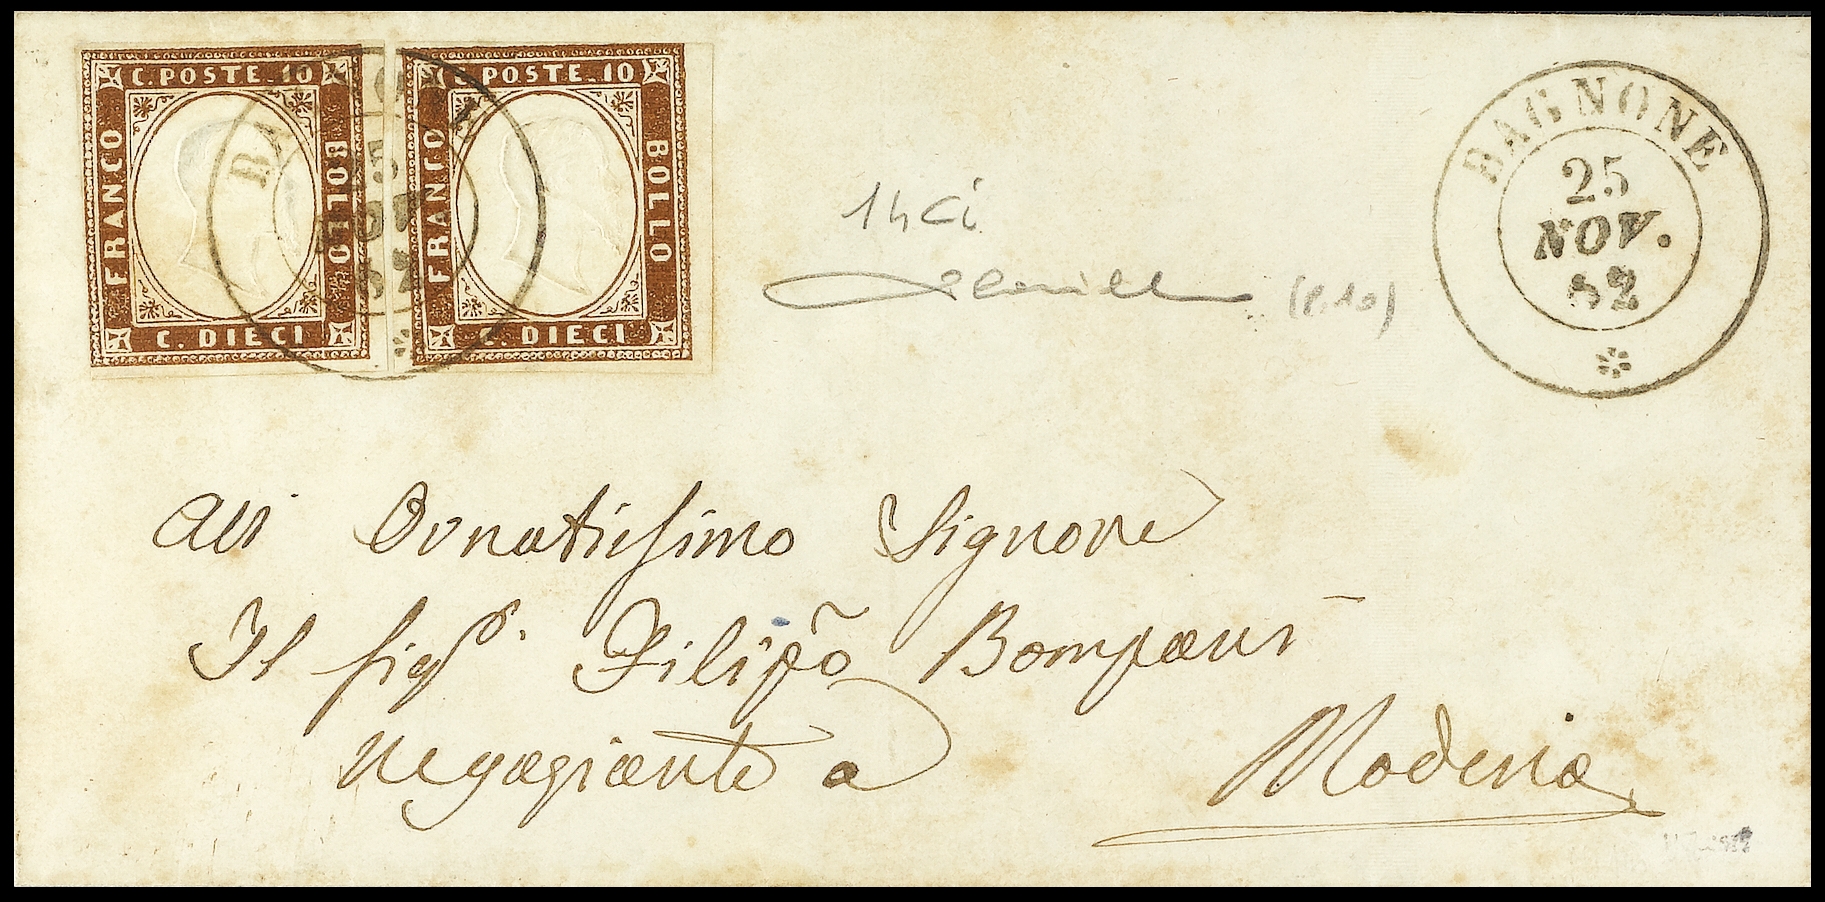 C. POSTE 10
FRANCO
BOLLO
C. DIECI
POSTE 10
FRANCO
BOLLO
C. DIECI
BAGNONE
25
NOV.
62
14Ci
(P.10)
All Ornatissimo Signore
Il Sigr. Filippo Bompani
negoziante a
Modena